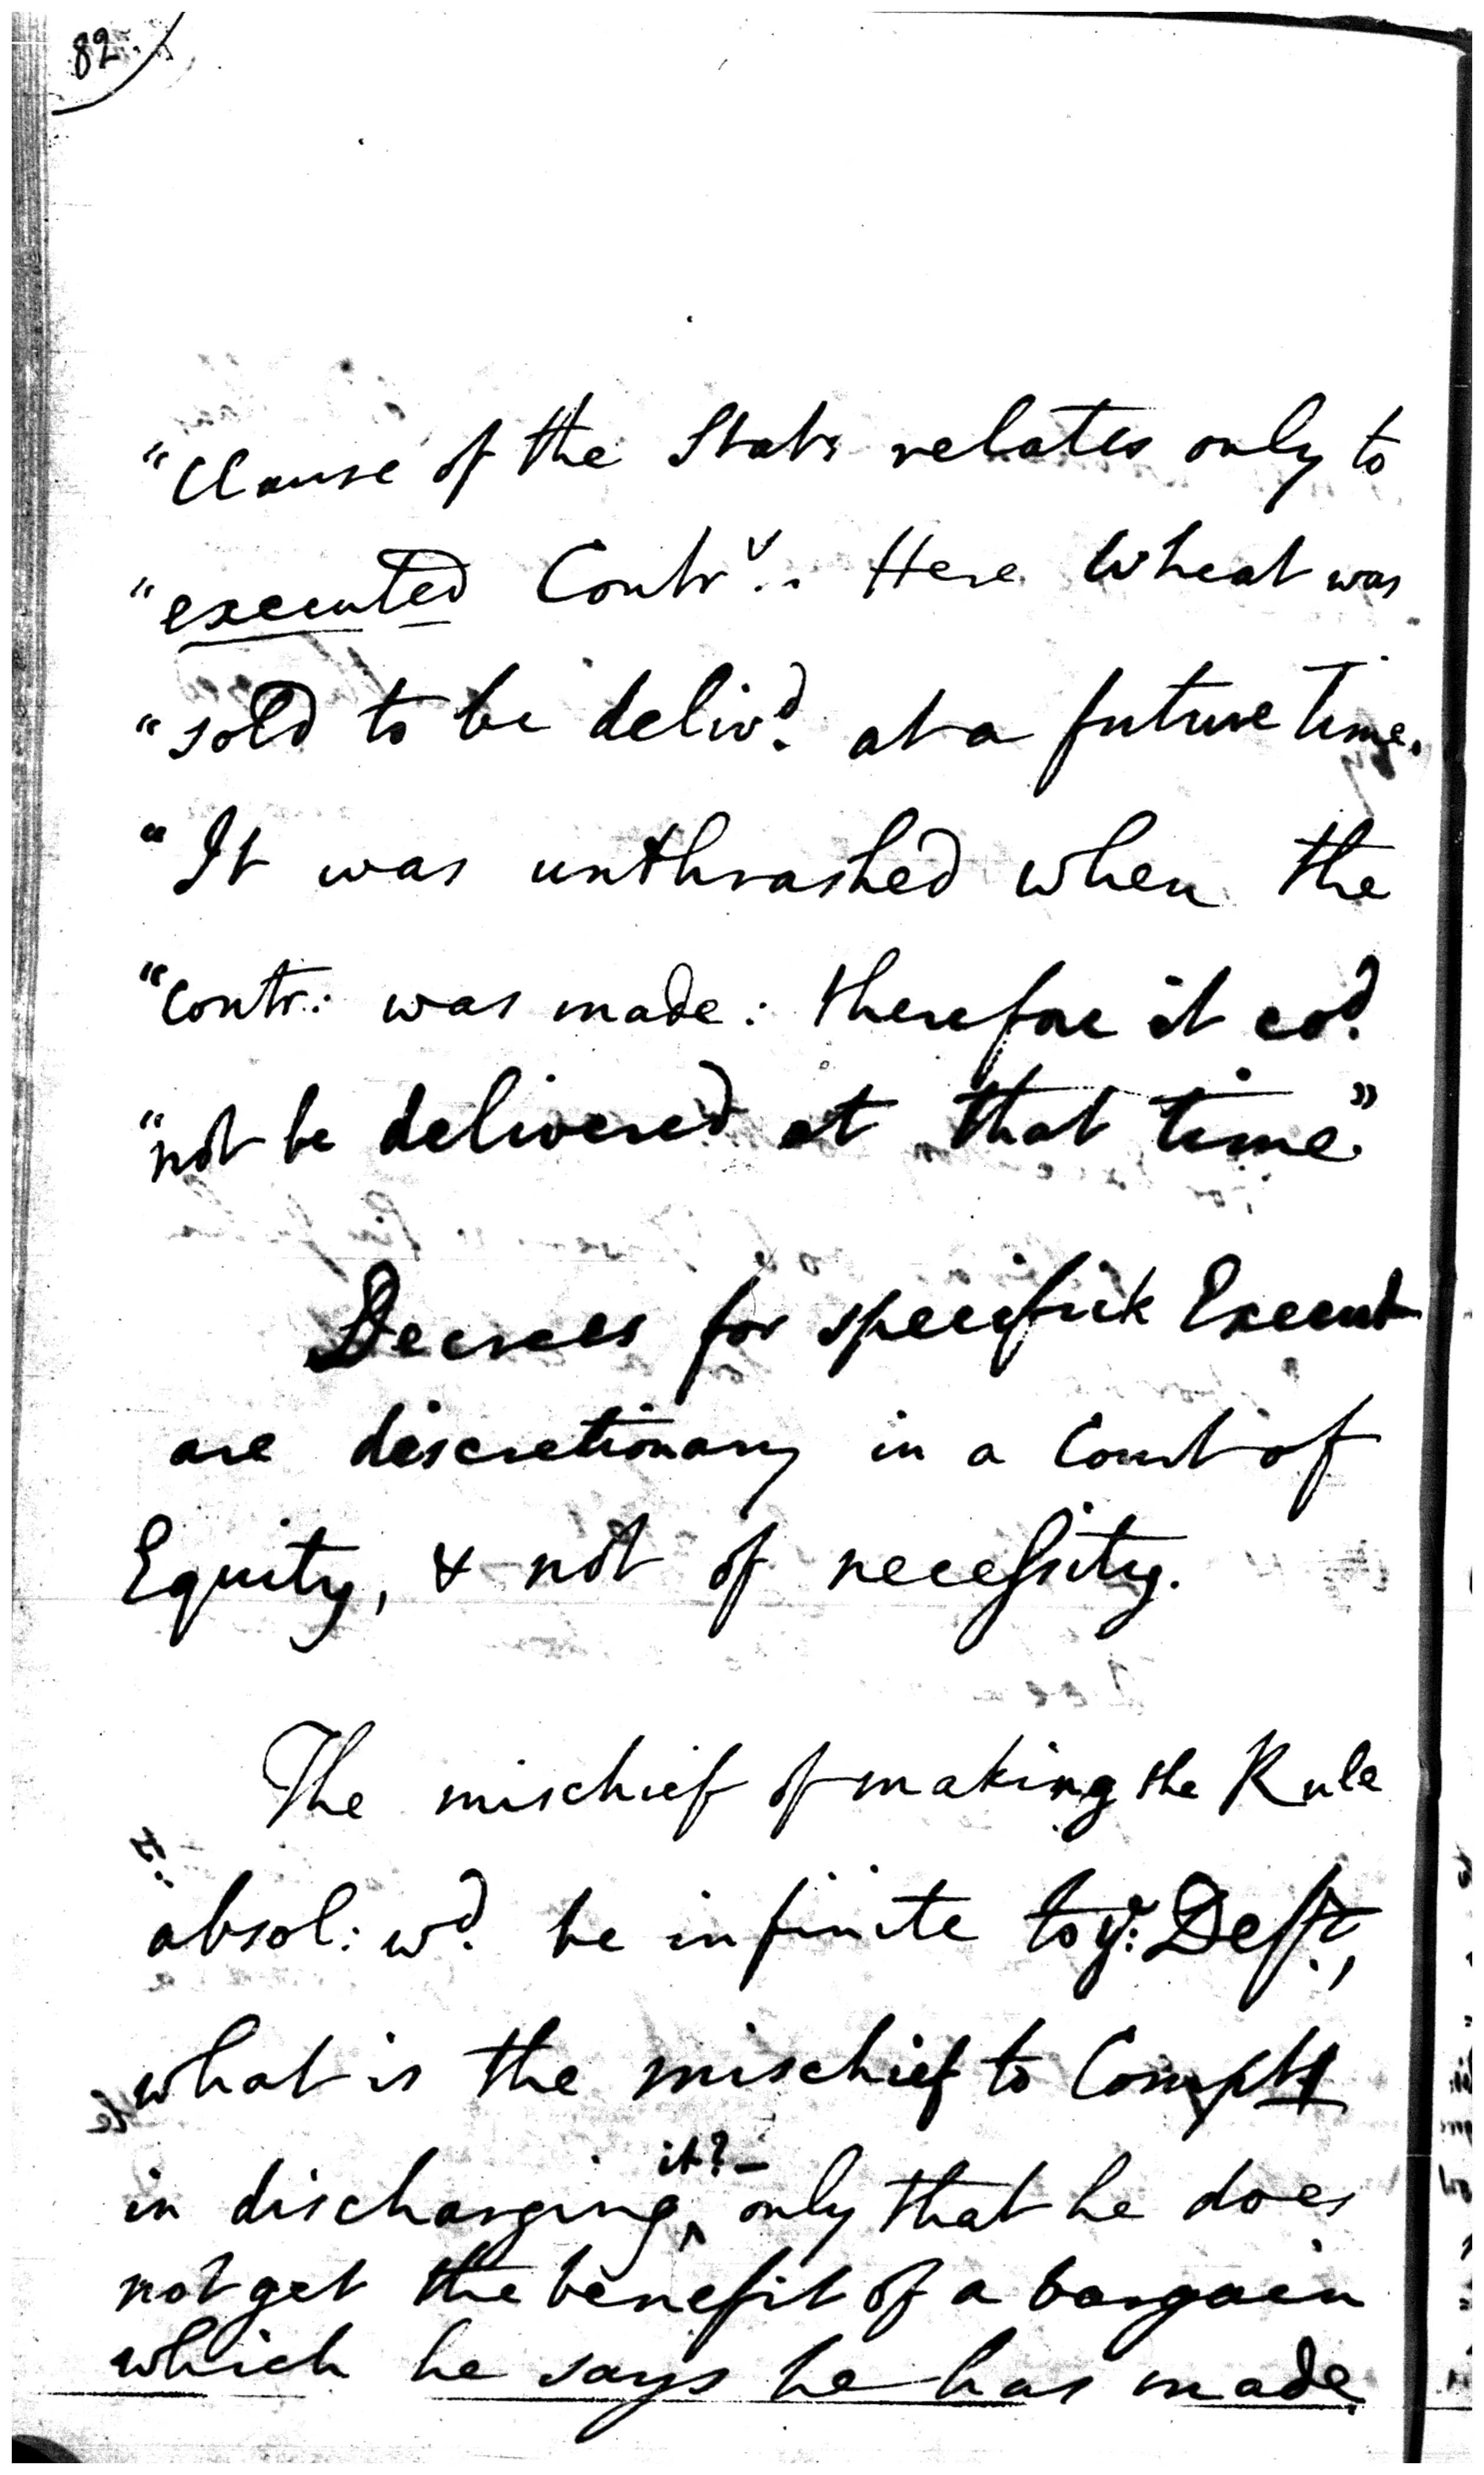 82
"Clause of the Stat: relates only to
"executed Contr.s. Here Wheat was
"sold to be deliv.d at a future Time.
"It was unthrashed when the
"contr: was made: therefore it co.d
"not be delivered at that time."
Decrees for specifick Execut
are discretionary in a Court of
Equity, & not of necessity.
The mischief of making the Rule
absol: w.d be infinite to y.e Def.t,
what is the mischief to Complt
it? –
in discharging ^ only that he does
not get the benefit of a bargain
which he says he has made.